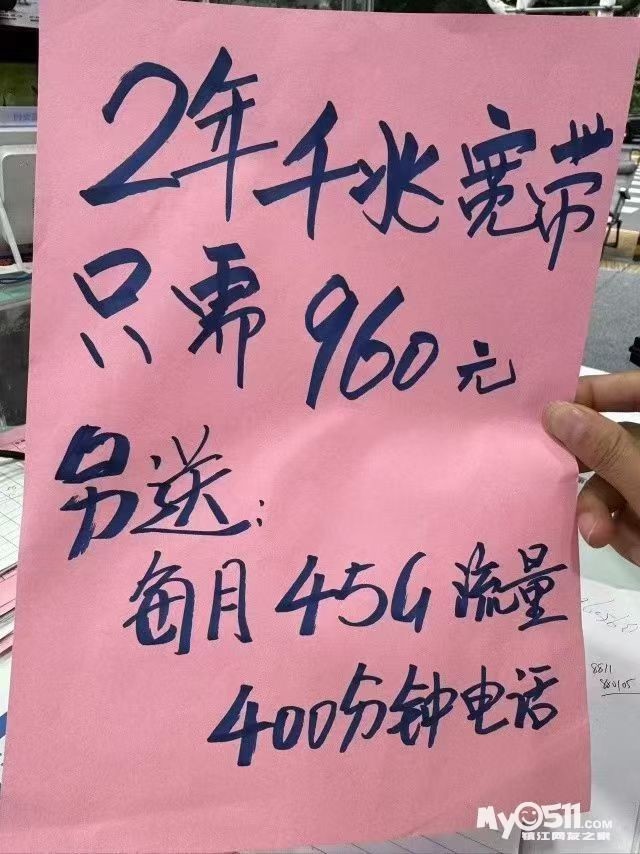 2年千兆宽带
只需960元
另送:
每月45G流量
400分钟电话
8811
880105
MyO511.COM
镇江网友之家